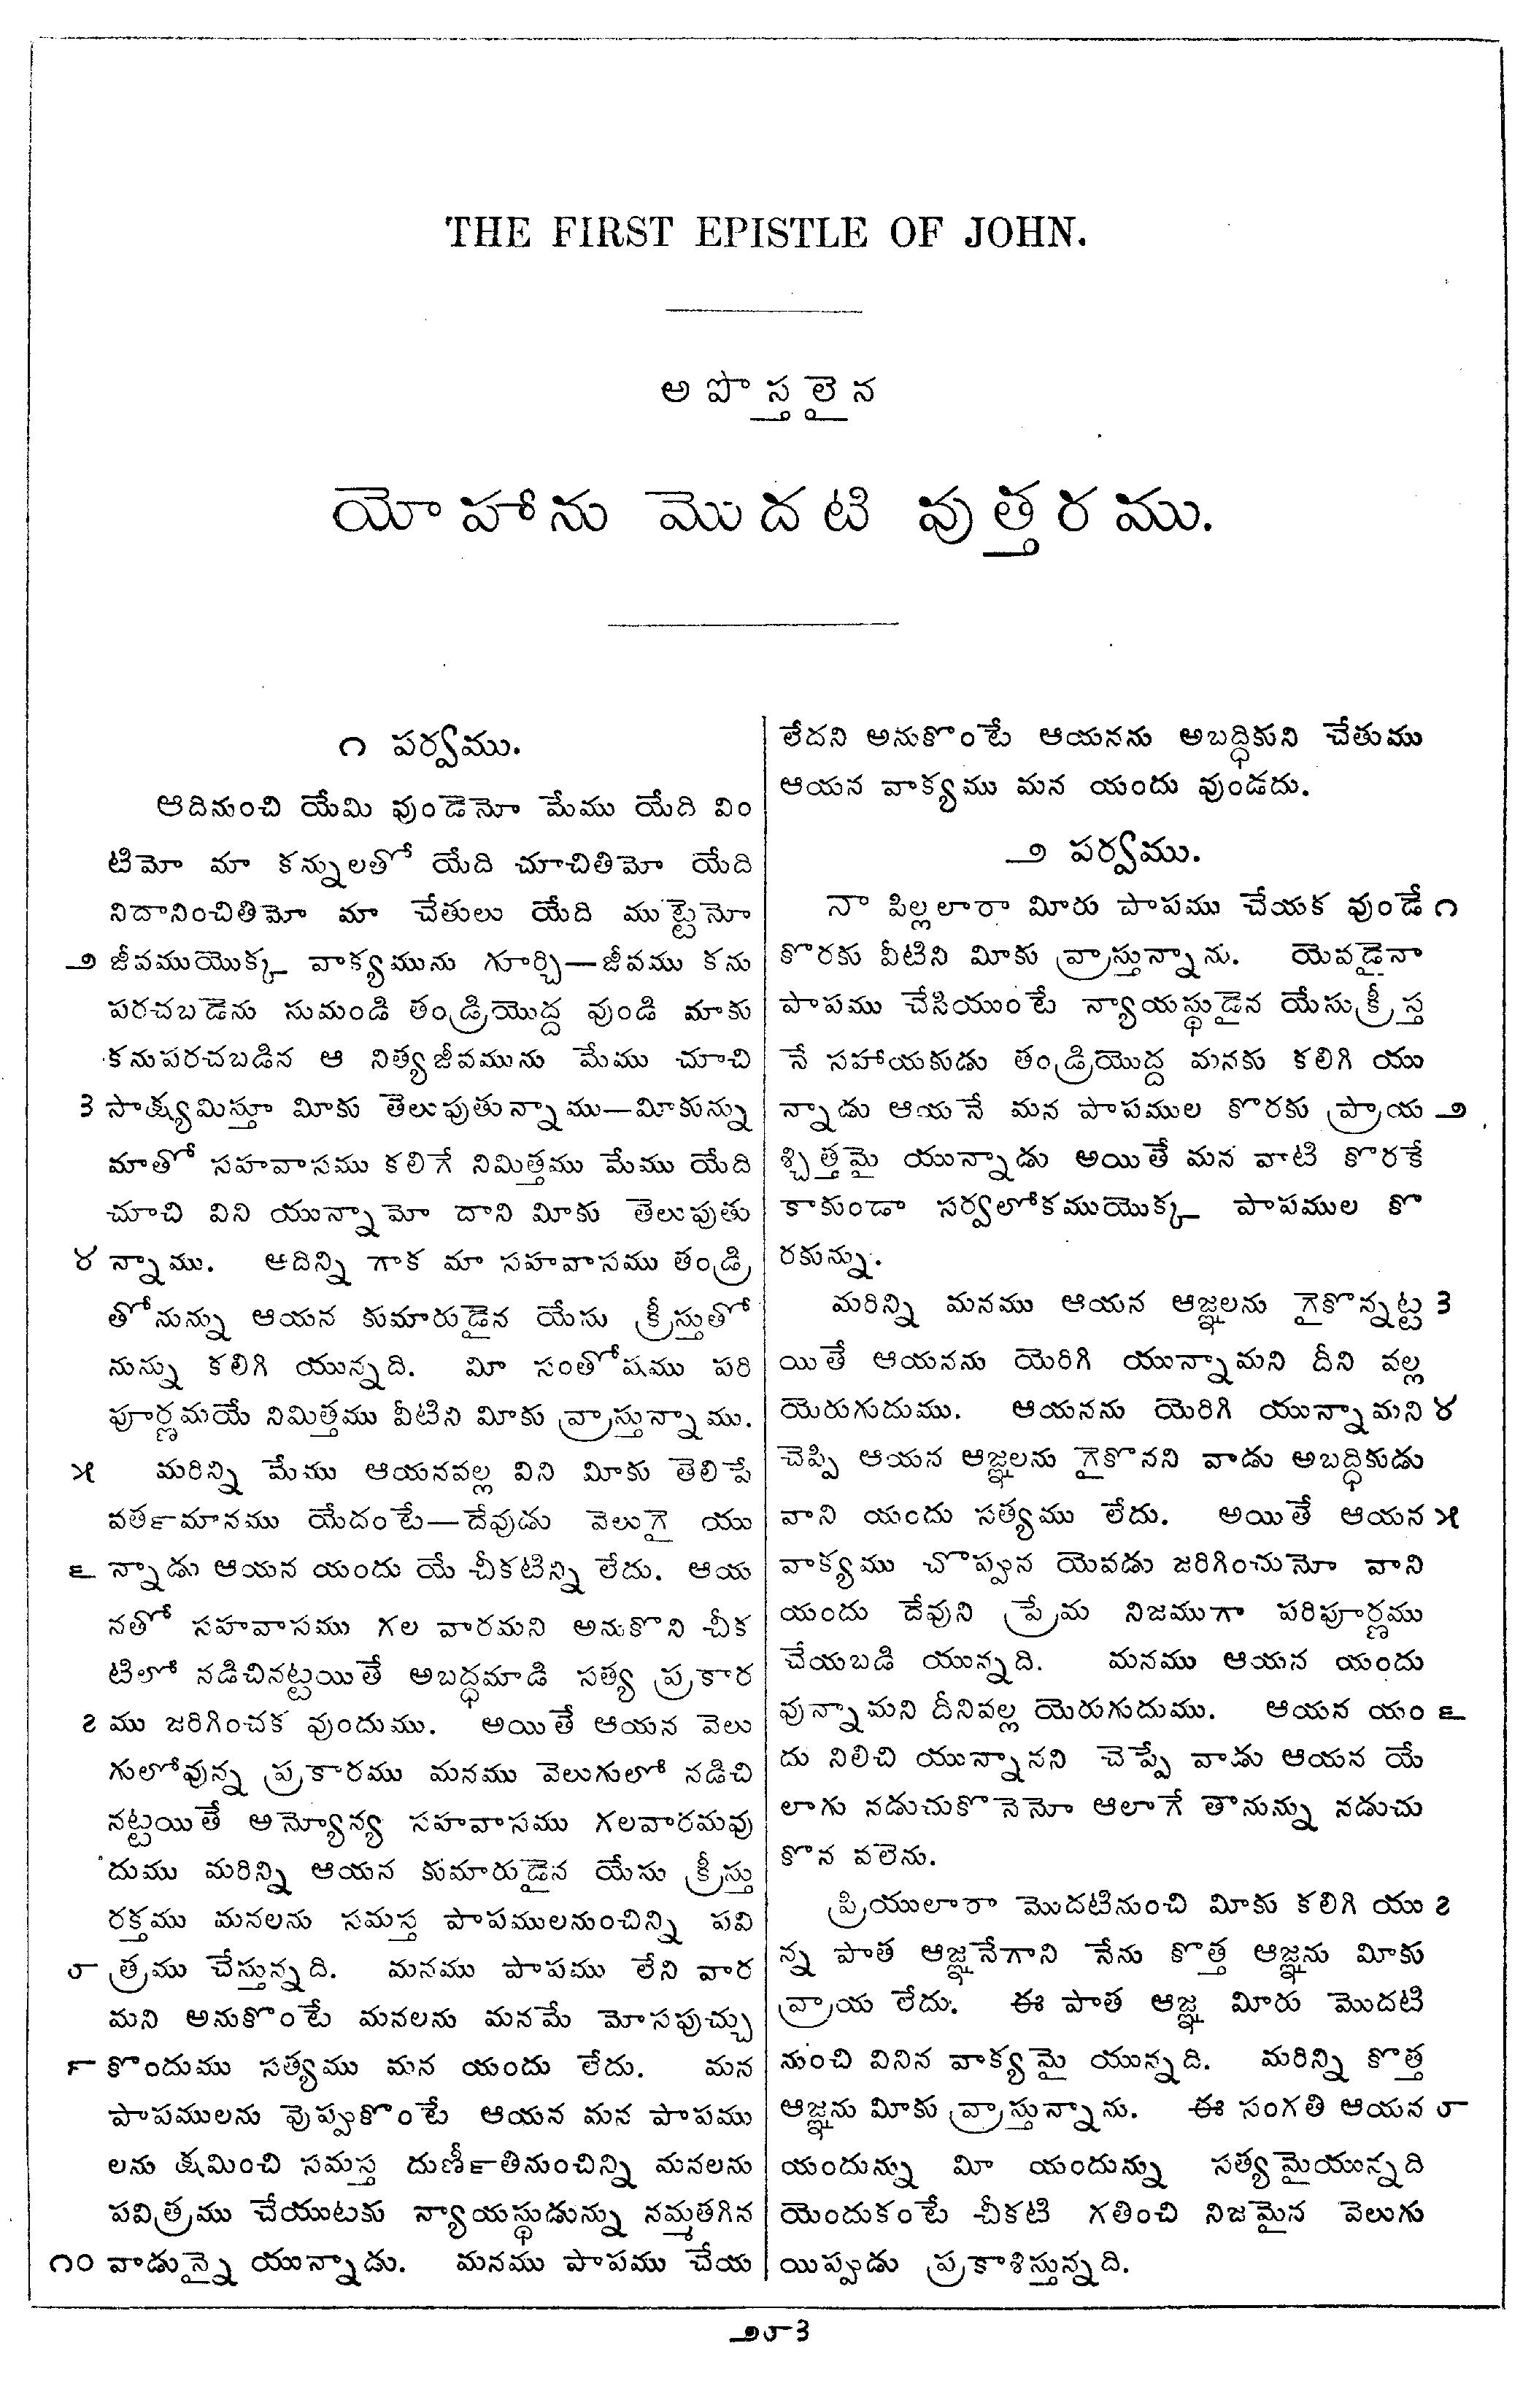 THE FIRST EPISTLE OF JOHN.
అపొస్తలైన
యోహాను మొదటి వుత్తరము.
౧ పర్వము.
ఆదినుంచి యేమి వుండెనో మేము యేది విం
టిమో మా కన్నులతో యేది చూచితిమో యేది
నిదానించితిమో మా చేతులు యేది ముట్టెనో
౨ జీవముయొక్క వాక్యమును గూర్చి—జీవము కను
పరచబడెను సుమండి తండ్రియొద్ద వుండి మాకు
కనుపరచబడిన ఆ నిత్యజీవమును మేము చూచి
౩ సాక్ష్యమిస్తూ మీకు తెలుపుతున్నాము—మీకున్ను
మాతో సహవాసము కలిగే నిమిత్తము మేము యేది
చూచి విని యున్నామో దాని మీకు తెలుపుతు
౪ న్నాము. ఆదిన్ని గాక మా సహవాసము తండ్రి
తోనున్ను ఆయన కుమారుడైన యేసు క్రీస్తుతో
నున్ను కలిగి యున్నది. మీ సంతోషము పరి
పూర్ణమయే నిమిత్తము వీటిని మీకు వ్రాస్తున్నాము.
౫ మరిన్ని మేము ఆయనవల్ల విని మీకు తెలిపే
వత౯మానము యేదంటే—దేవుడు వెలుగై యు
౬ న్నాడు ఆయన యందు యే చీకటిన్ని లేదు. ఆయ
నతో సహవాసము గల వారమని అనుకొని చీక
టిలో నడిచినట్టయితే అబద్ధమాడి సత్య ప్రకార
౭ ము జరిగించక వుందుము. అయితే ఆయన వెలు
గులోవున్న ప్రకారము మనము వెలుగులో నడిచి
నట్టయితే అన్యోన్య సహవాసము గలవారమవు
దుము మరిన్ని ఆయన కుమారుడైన యేసు క్రీస్తు
రక్తము మనలను సమస్త పాపములనుంచిన్ని పవి
౮ త్రము చేస్తున్నది. మనము పాపము లేని వార
మని అనుకొంటే మనలను మనమే మోసపుచ్చు
౯ కొందుము సత్యము మన యందు లేదు. మన
పాపములను వ్రొప్పుకొంటే ఆయన మన పాపము
లను క్షమించి సమస్త దుణీ౯తినుంచిన్ని మనలను
పవిత్రము చేయుటకు న్యాయస్థుడున్ను నమ్మతగిన
౧౦ వాడున్నై యున్నాడు. మనము పాపము చేయ
లేదని అనుకొంటే ఆయనను అబద్ధికుని చేతుము
ఆయన వాక్యము మన యందు వుండదు.
౨ పర్వము.
నా పిల్లలారా మీరు పాపము చేయక వుండే ౧
కొరకు వీటిని మీకు వ్రాస్తున్నాను. యెవడైనా
పాపము చేసియుంటే న్యాయస్థుడైన యేసుక్రీస్త
నే సహాయకుడు తండ్రియొద్ద మనకు కలిగి యు
న్నాడు ఆయనే మన పాపముల కొరకు ప్రాయ ౨
శ్చిత్తమై యున్నాడు అయితే మన వాటి కొరకే
కాకుండా సర్వలోకముయొక్క పాపముల కొ
రకున్ను.
మరిన్ని మనము ఆయన ఆజ్ఞలను గైకొన్నట్ట ౩
యితే ఆయనను యెరిగి యున్నామని దీని వల్ల
యెరుగుదుము. ఆయనను యెరిగి యున్నామని ౪
చెప్పి ఆయన ఆజ్ఞలను గైకొనని వాడు అబద్ధికుడు
వాని యందు సత్యము లేదు. అయితే ఆయన ౫
వాక్యము చొప్పున యెవడు జరిగించునో వాని
యందు దేవుని ప్రేమ నిజముగా పరిపూర్ణము
చేయబడి యున్నది. మనము ఆయన యందు
వున్నామని దీనివల్ల యెరుగుదుము. ఆయన యం ౬
దు నిలిచి యున్నానని చెప్పే వాడు ఆయన యే
లాగు నడుచుకొనెనో ఆలాగే తానున్ను నడుచు
కొన వలెను.
ప్రియులారా మొదటినుంచి మీకు కలిగి యు ౭
న్న పాత ఆజ్ఞనేగాని నేను కొత్త ఆజ్ఞను మీకు
వ్రాయ లేదు. ఈ పాత ఆజ్ఞ మీరు మొదటి
నుంచి వినిన వాక్యమై యున్నది. మరిన్ని కొత్త
ఆజ్ఞను మీకు వ్రాస్తున్నాను. ఈ సంగతి ఆయన ౮
యందున్ను మీ యందున్ను సత్యమైయున్నది
యెందుకంటే చీకటి గతించి నిజమైన వెలుగు
యిప్పుడు ప్రకాశిస్తున్నది.
౨౮౩